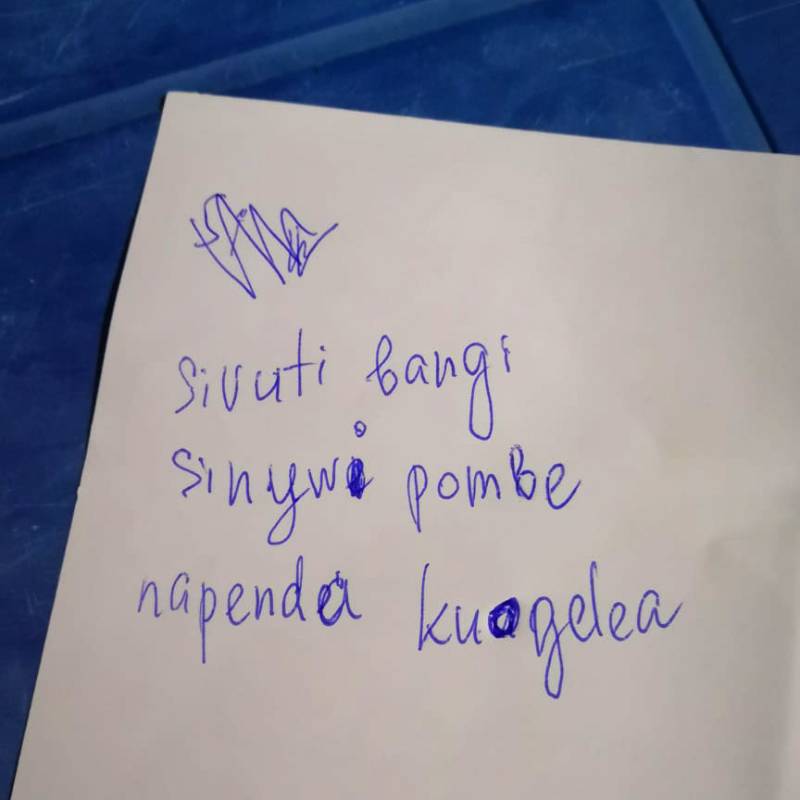 sivuti bangi
sinywi pombe
napenda kuogelea